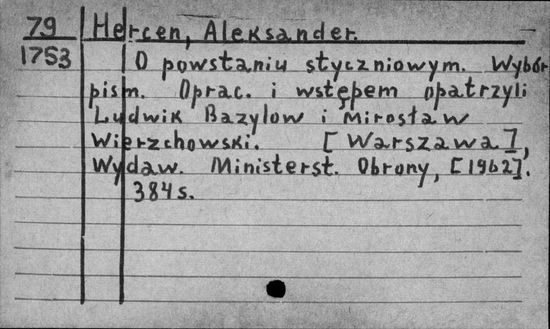 79 Hercen, Aleksander.
1753 O powstaniu styczniowym. Wybór
pism. Oprac. i wstępem opatrzyli
Ludwik Bazylow i Mirosław
Wierzchowski. [Warszawa],
Wydaw. Ministerst. Obrony, [1962].
384 s.